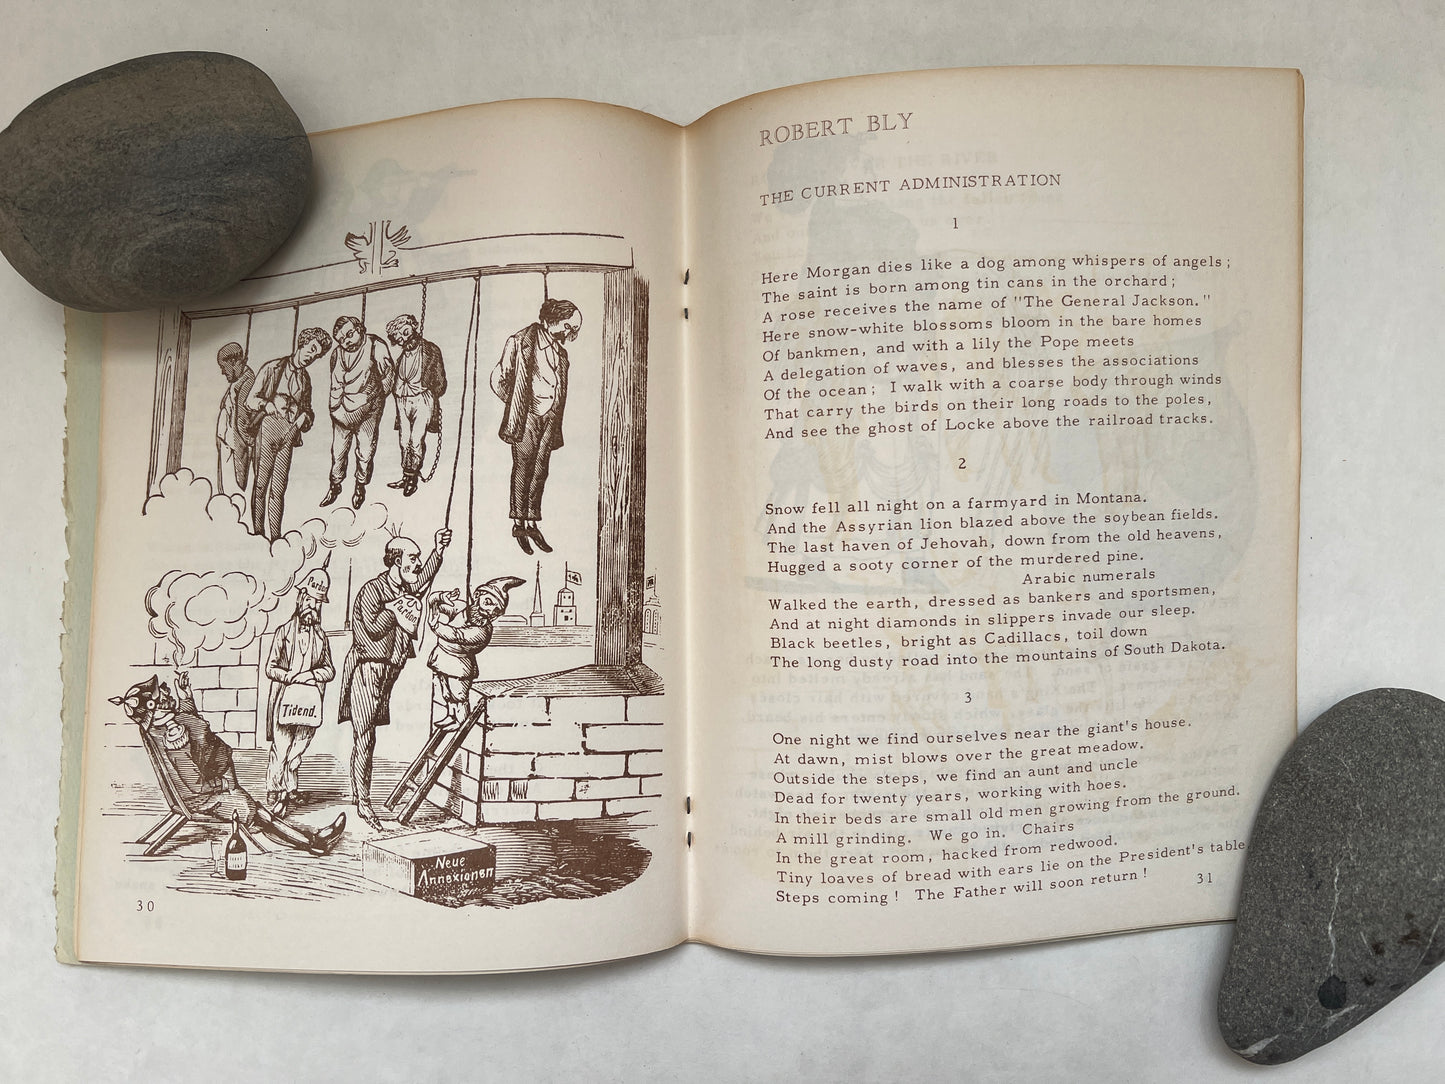 Pardon
Pardon.
Tidend.
Neue
Annexionen
30
ROBERT BLY
THE CURRENT ADMINISTRATION
1
Here Morgan dies like a dog among whispers of angels;
The saint is born among tin cans in the orchard;
A rose receives the name of "The General Jackson."
Here snow-white blossoms bloom in the bare homes
Of bankmen, and with a lily the Pope meets
A delegation of waves, and blesses the associations
Of the ocean; I walk with a coarse body through winds
That carry the birds on their long roads to the poles,
And see the ghost of Locke above the railroad tracks.
2
Snow fell all night on a farmyard in Montana.
And the Assyrian lion blazed above the soybean fields.
The last haven of Jehovah, down from the old heavens,
Hugged a sooty corner of the murdered pine.
Arabic numerals
Walked the earth, dressed as bankers and sportsmen,
And at night diamonds in slippers invade our sleep.
Black beetles, bright as Cadillacs, toil down
The long dusty road into the mountains of South Dakota.
3
One night we find ourselves near the giant's house.
At dawn, mist blows over the great meadow.
Outside the steps, we find an aunt and uncle
Dead for twenty years, working with hoes.
In their beds are small old men growing from the ground.
A mill grinding. We go in. Chairs
In the great room, hacked from redwood.
Tiny loaves of bread with ears lie on the President's table
Steps coming! The Father will soon return!
31